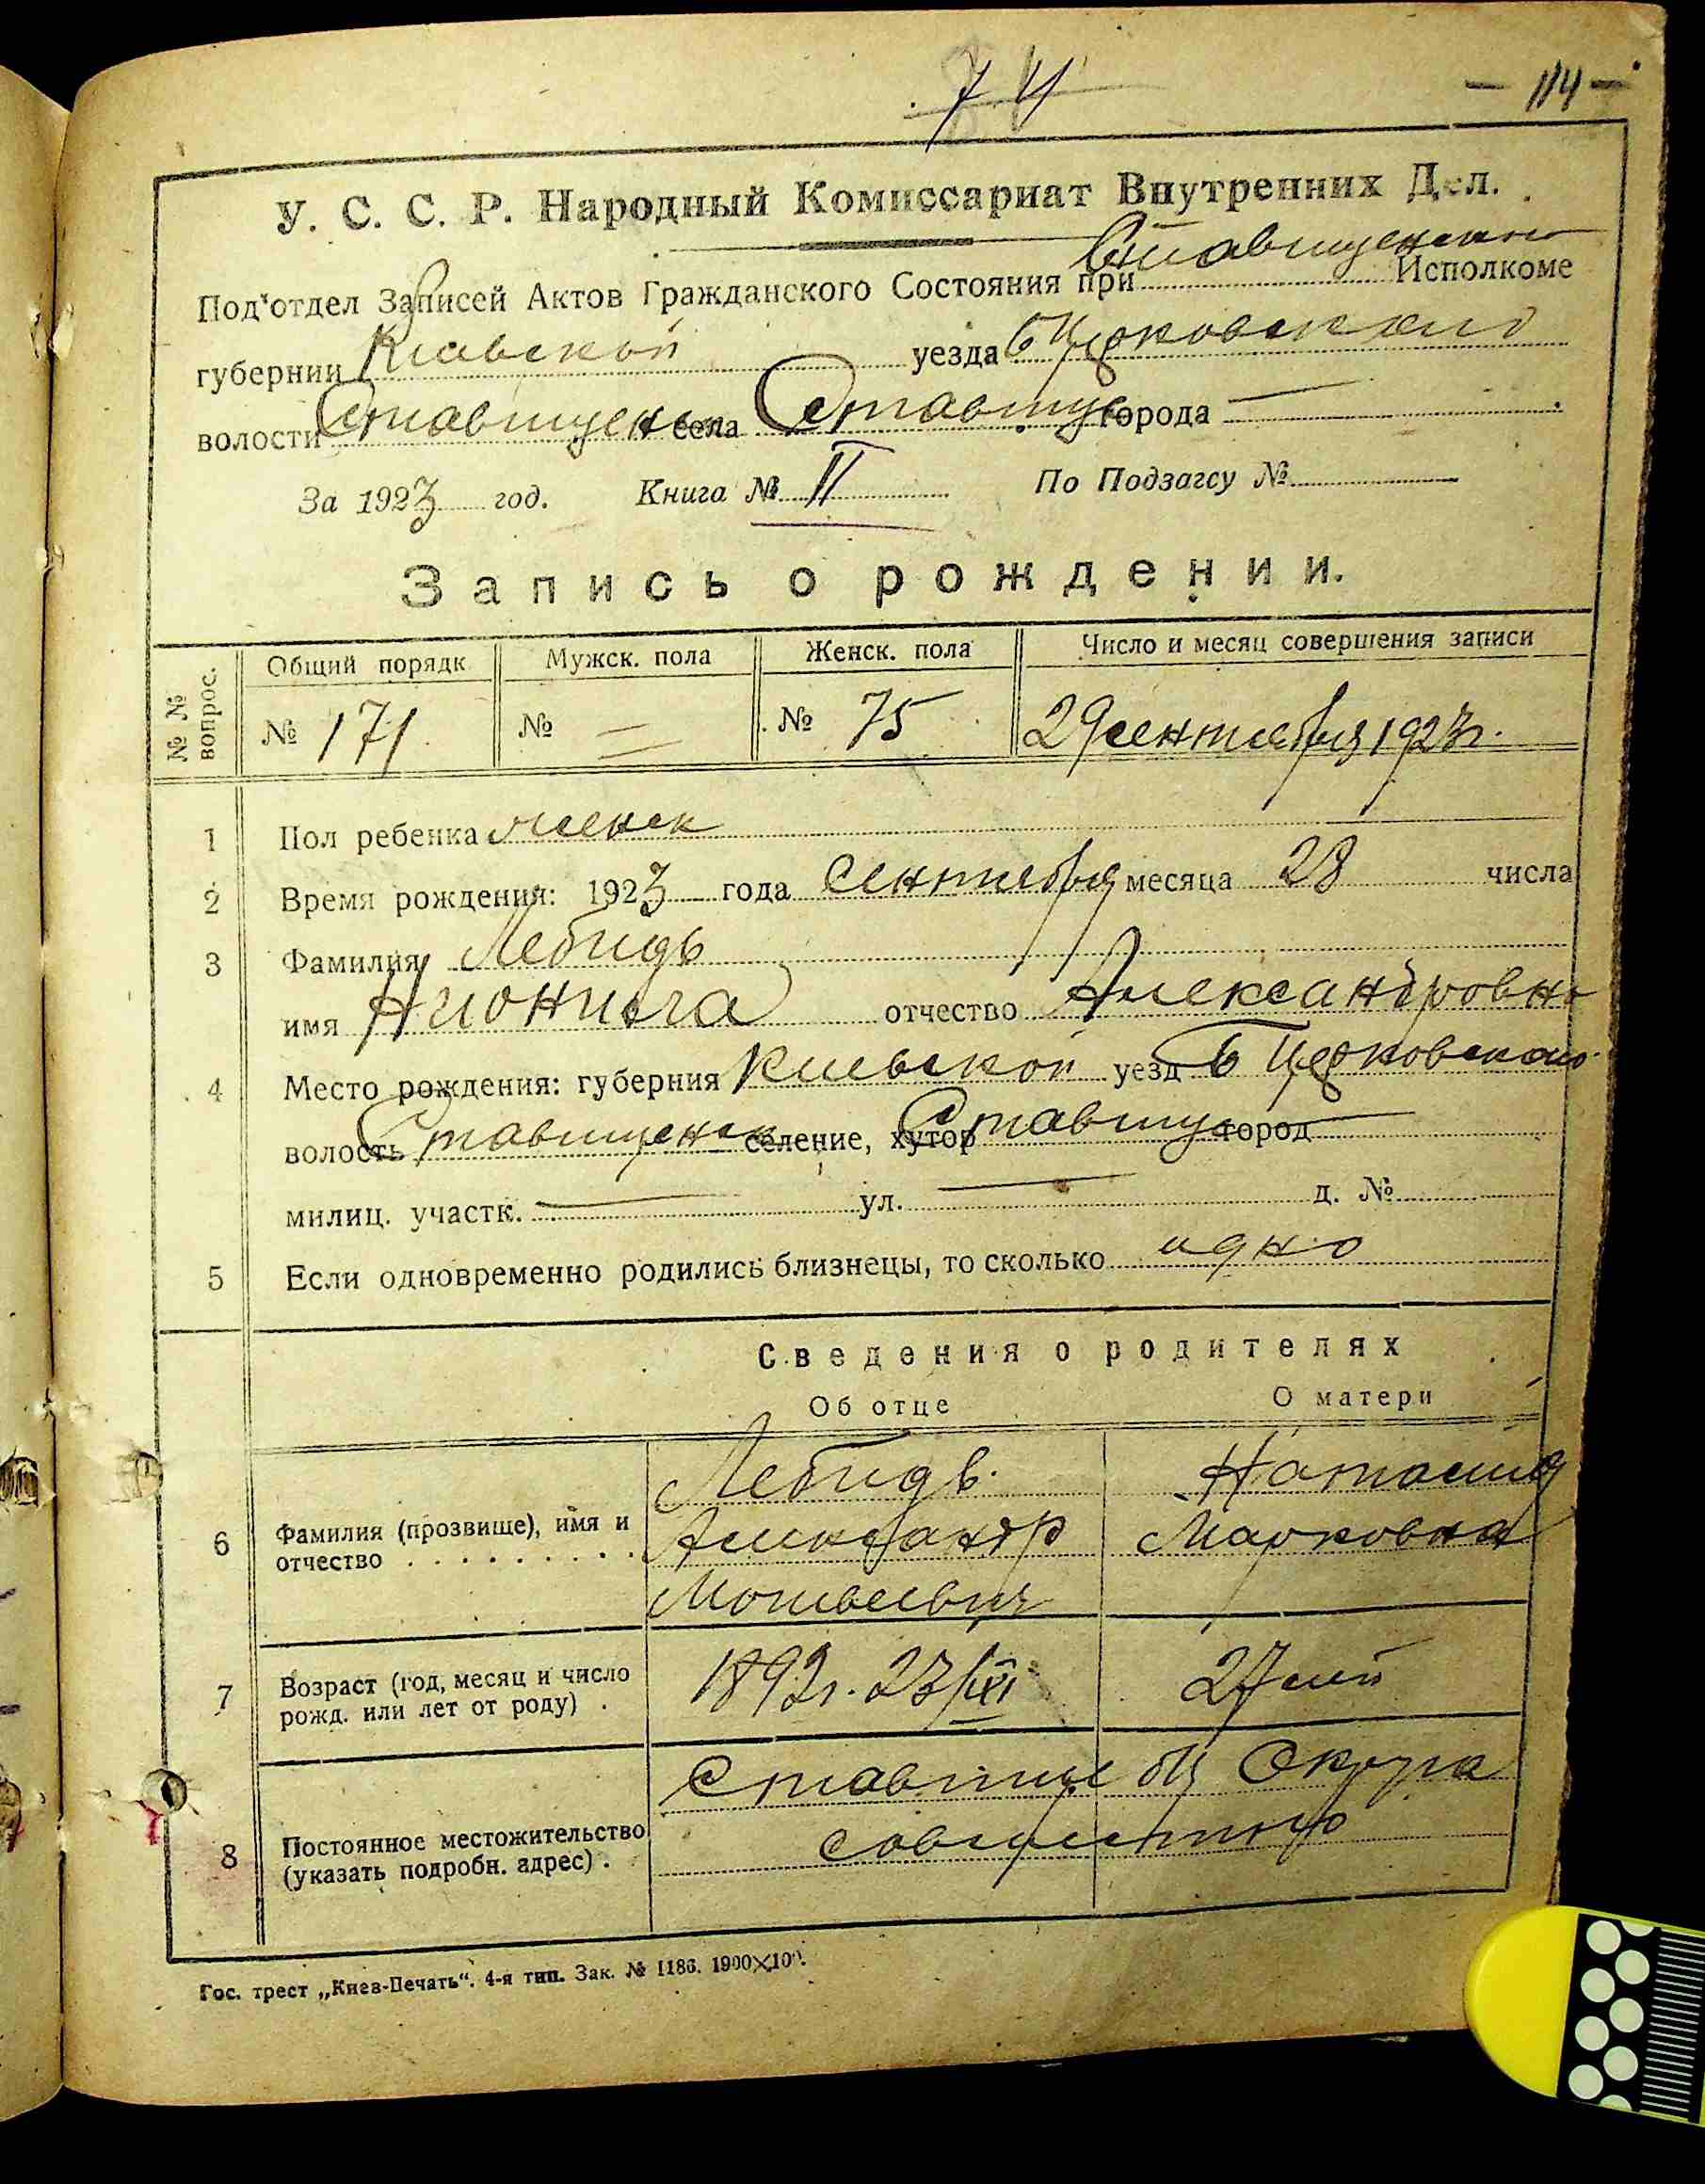 74
— 114 —
У. С. С. Р. Народный Комиссариат Внутренних Дел.
Под'отдел Записей Актов Гражданского Состояния при Ставищенском Исполкоме
губернии Киевской уезда Б Церковского
волости Ставищенск села Ставище города —
За 1923 год. Книга № II По Подзагсу №
Запись о рождении.
№ № вопрос. Общий порядк Мужск. пола Женск. пола Число и месяц совершения записи
№ 171 № = № 75 29 сентября 1923 г.
1 Пол ребенка женск
2 Время рождения: 1923 года Сентября месяца 28 числа
3 Фамилия Лебидь
имя отчество Александровна
4 Место рождения: губерния Киевской уезд Б Церковского
волость Ставищенск селение, хутор Ставище город —
милиц. участк. — ул. — д. №
5 Если одновременно родились близнецы, то сколько одно
Сведения о родителях
Об отце О матери
6 Фамилия (прозвище), имя и отчество
Лебидь
Александр
Мотвеевич
Наталия
Марковна
7 Возраст (год, месяц и число рожд. или лет от роду) . 1892 г. 23/XI 27 лет
8 Постоянное местожительство (указать подробн. адрес) .
Ставище БЦ Округа
совместно
Гос. трест „Киев-Печать“. 4-я тип. Зак. № 1186. 1900×100.